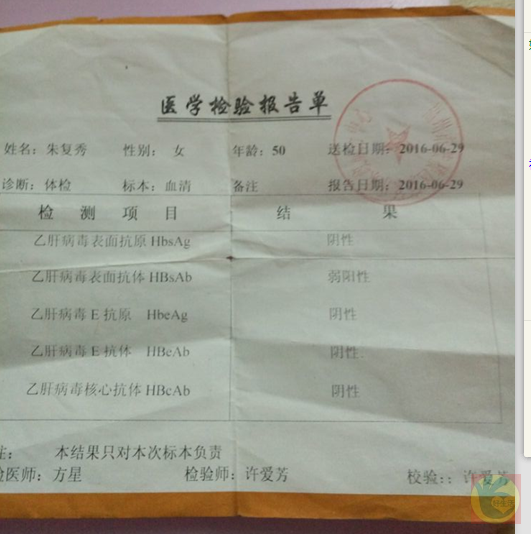 医学检验报告单
姓名：朱复秀 性别： 女 年龄：50 送检日期：2016-06-29
诊断：体检 标本：血清 备注 报告日期：2016-06-29
检 测 项 目 结 果
乙肝病毒表面抗原 HbsAg 阴性
乙肝病毒表面抗体 HBsAb 弱阳性
乙肝病毒 E 抗原 HbeAg 阴性
乙肝病毒 E 抗体 HBeAb 阴性
乙肝病毒核心抗体 HBcAb 阴性
注： 本结果只对本次标本负责
检医师：方星 检验师：许爱芳 校验：：许爱芳